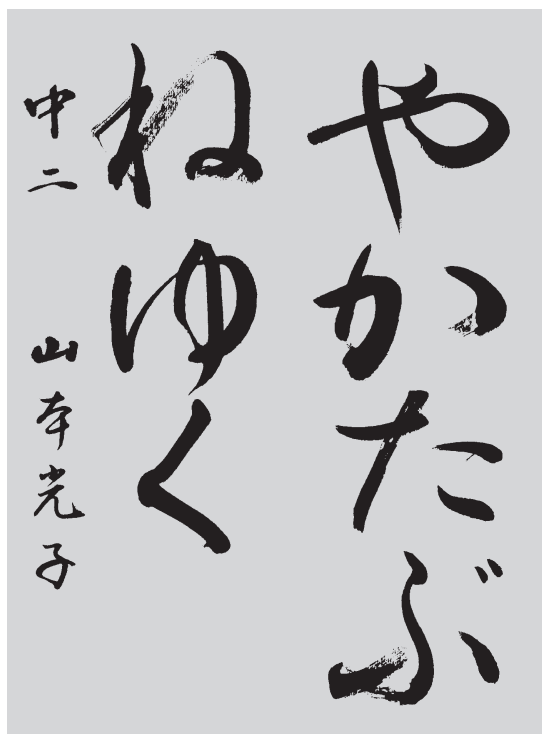 やかたぶ
ねゆく
中二 山本光子